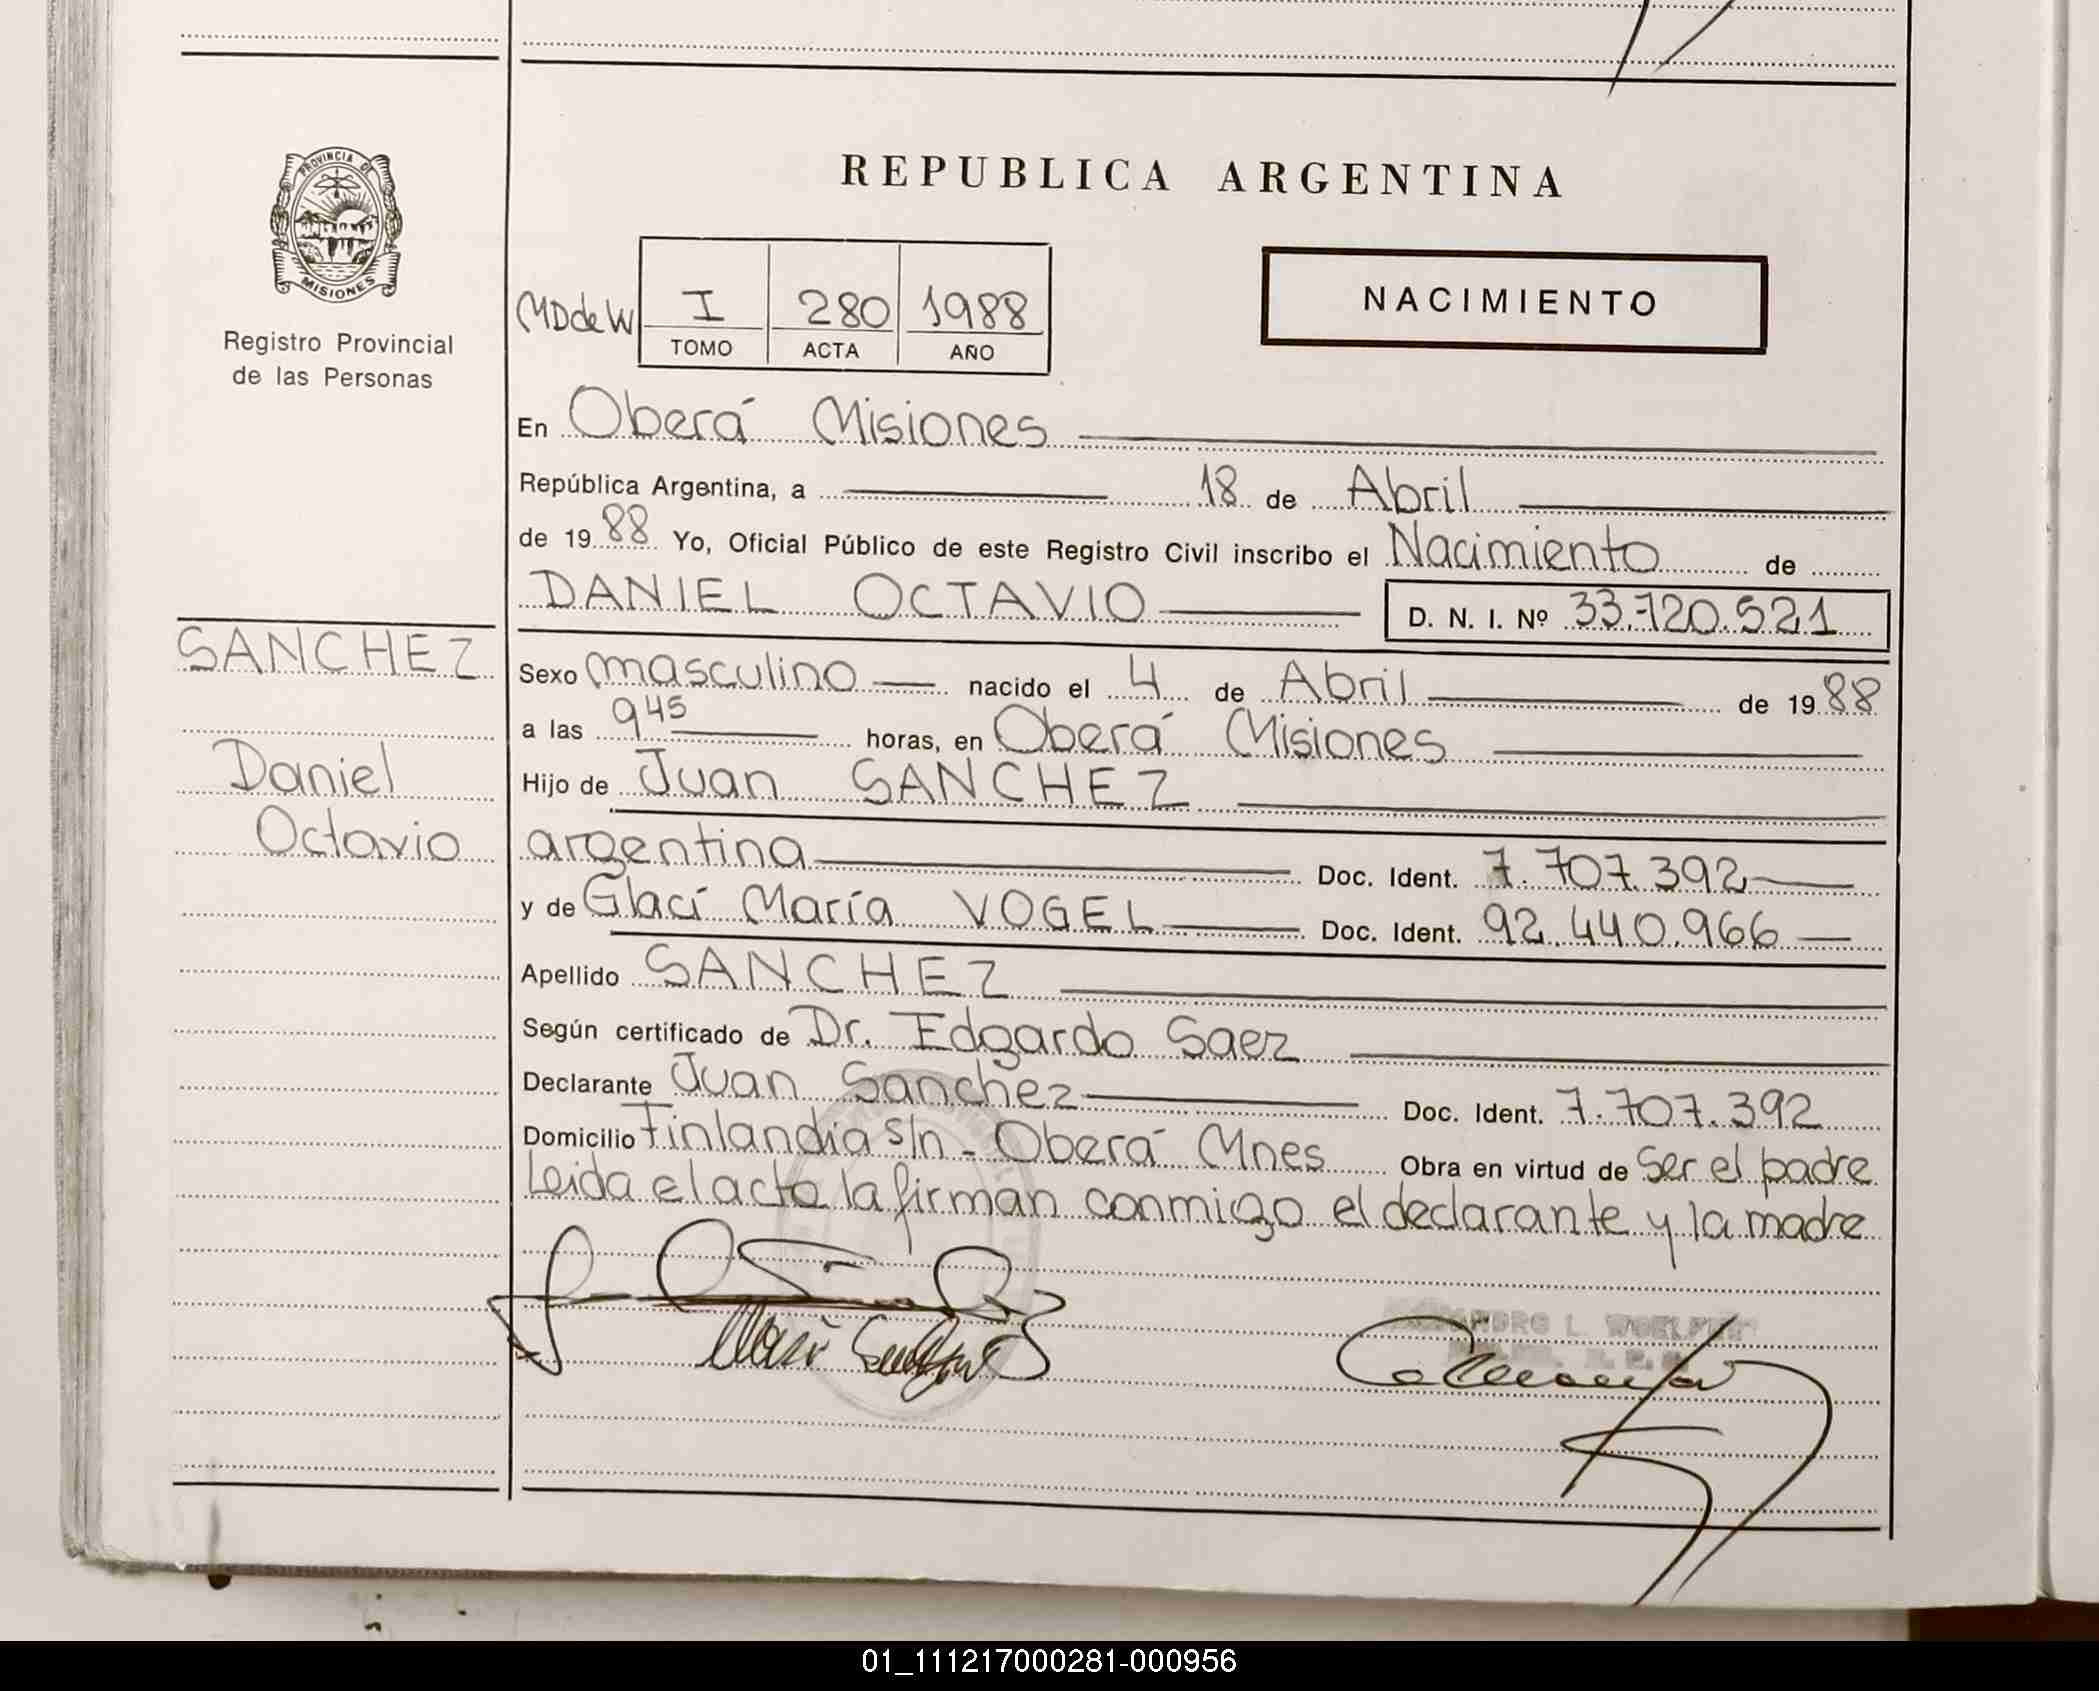 PROVINCIA DE
MISIONES
Registro Provincial
de las Personas
SANCHEZ
Daniel
Octavio
REPUBLICA ARGENTINA
NACIMIENTO
MDdeW I 280 1988
TOMO ACTA AÑO
En Oberá Misiones
República Argentina, a 18 de Abril
de 1988 Yo, Oficial Público de este Registro Civil inscribo el Nacimiento de
DANIEL OCTAVIO D. N. I. Nº 33.720.521
Sexo masculino nacido el 4 de Abril de 1988
a las 9 45 horas, en Oberá Misiones
Hijo de Juan SANCHEZ
argentina Doc. Ident. 7.707.392
y de Glací María VOGEL Doc. Ident. 92.440.966
Apellido SANCHEZ
Según certificado de Dr. Edgardo Saez
Declarante Juan Sanchez Doc. Ident. 7.707.392
Domicilio Finlandia s/n - Oberá Mnes Obra en virtud de Ser el padre
Leida el acto la firman conmigo el declarante y la madre
01_111217000281-000956